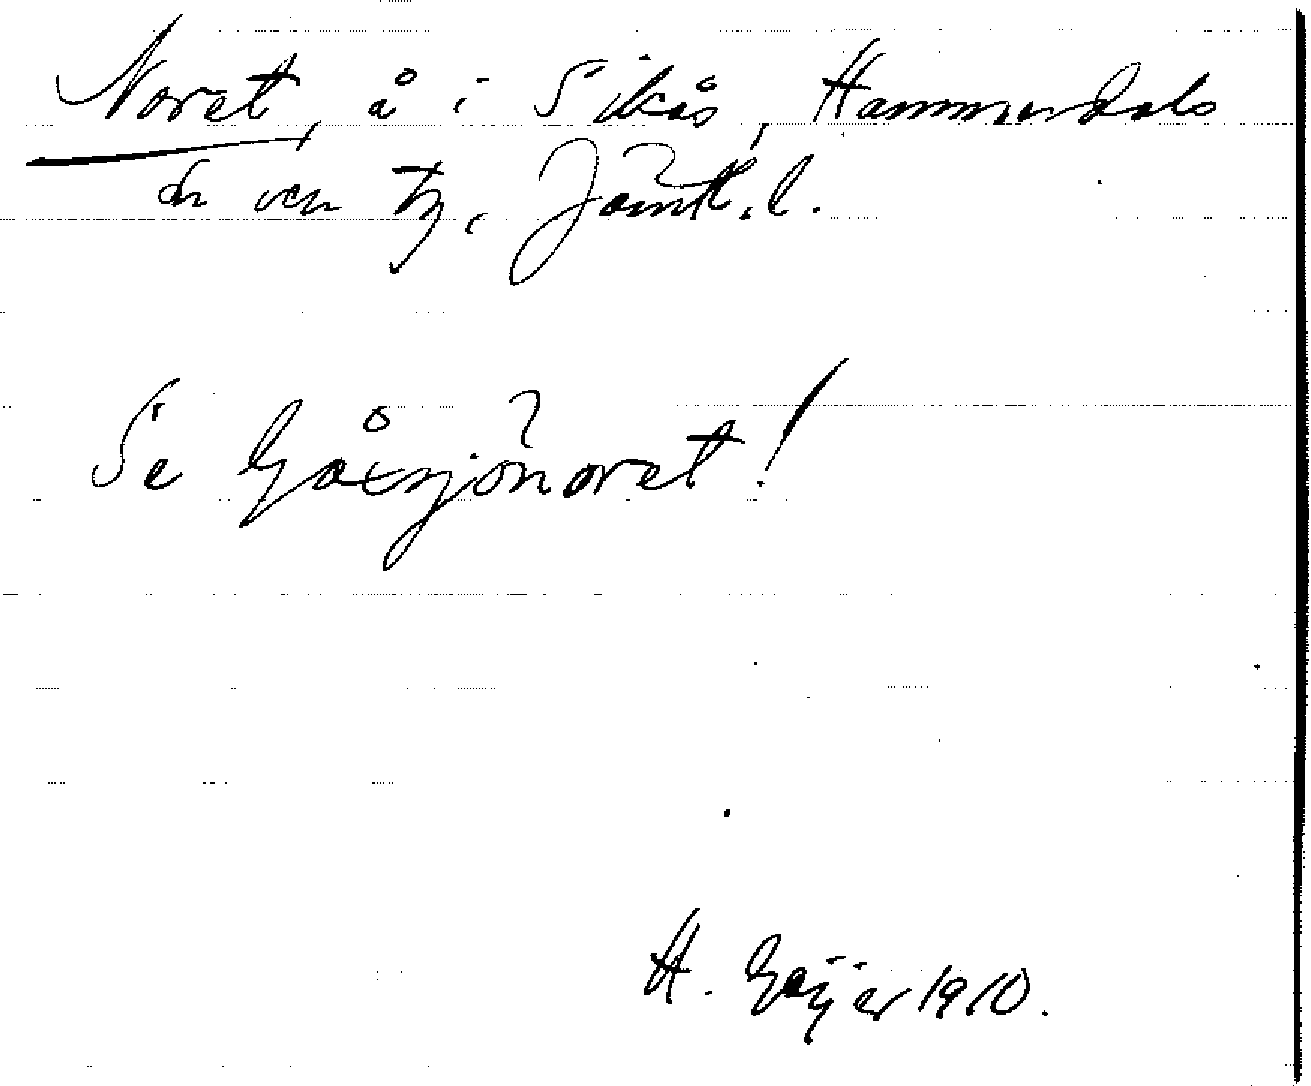 Noret, å i Sikås, Hammerdals
sn och tg, Jämtl. l.
Se Gåxsjönoret!
H. Geijer 1910.